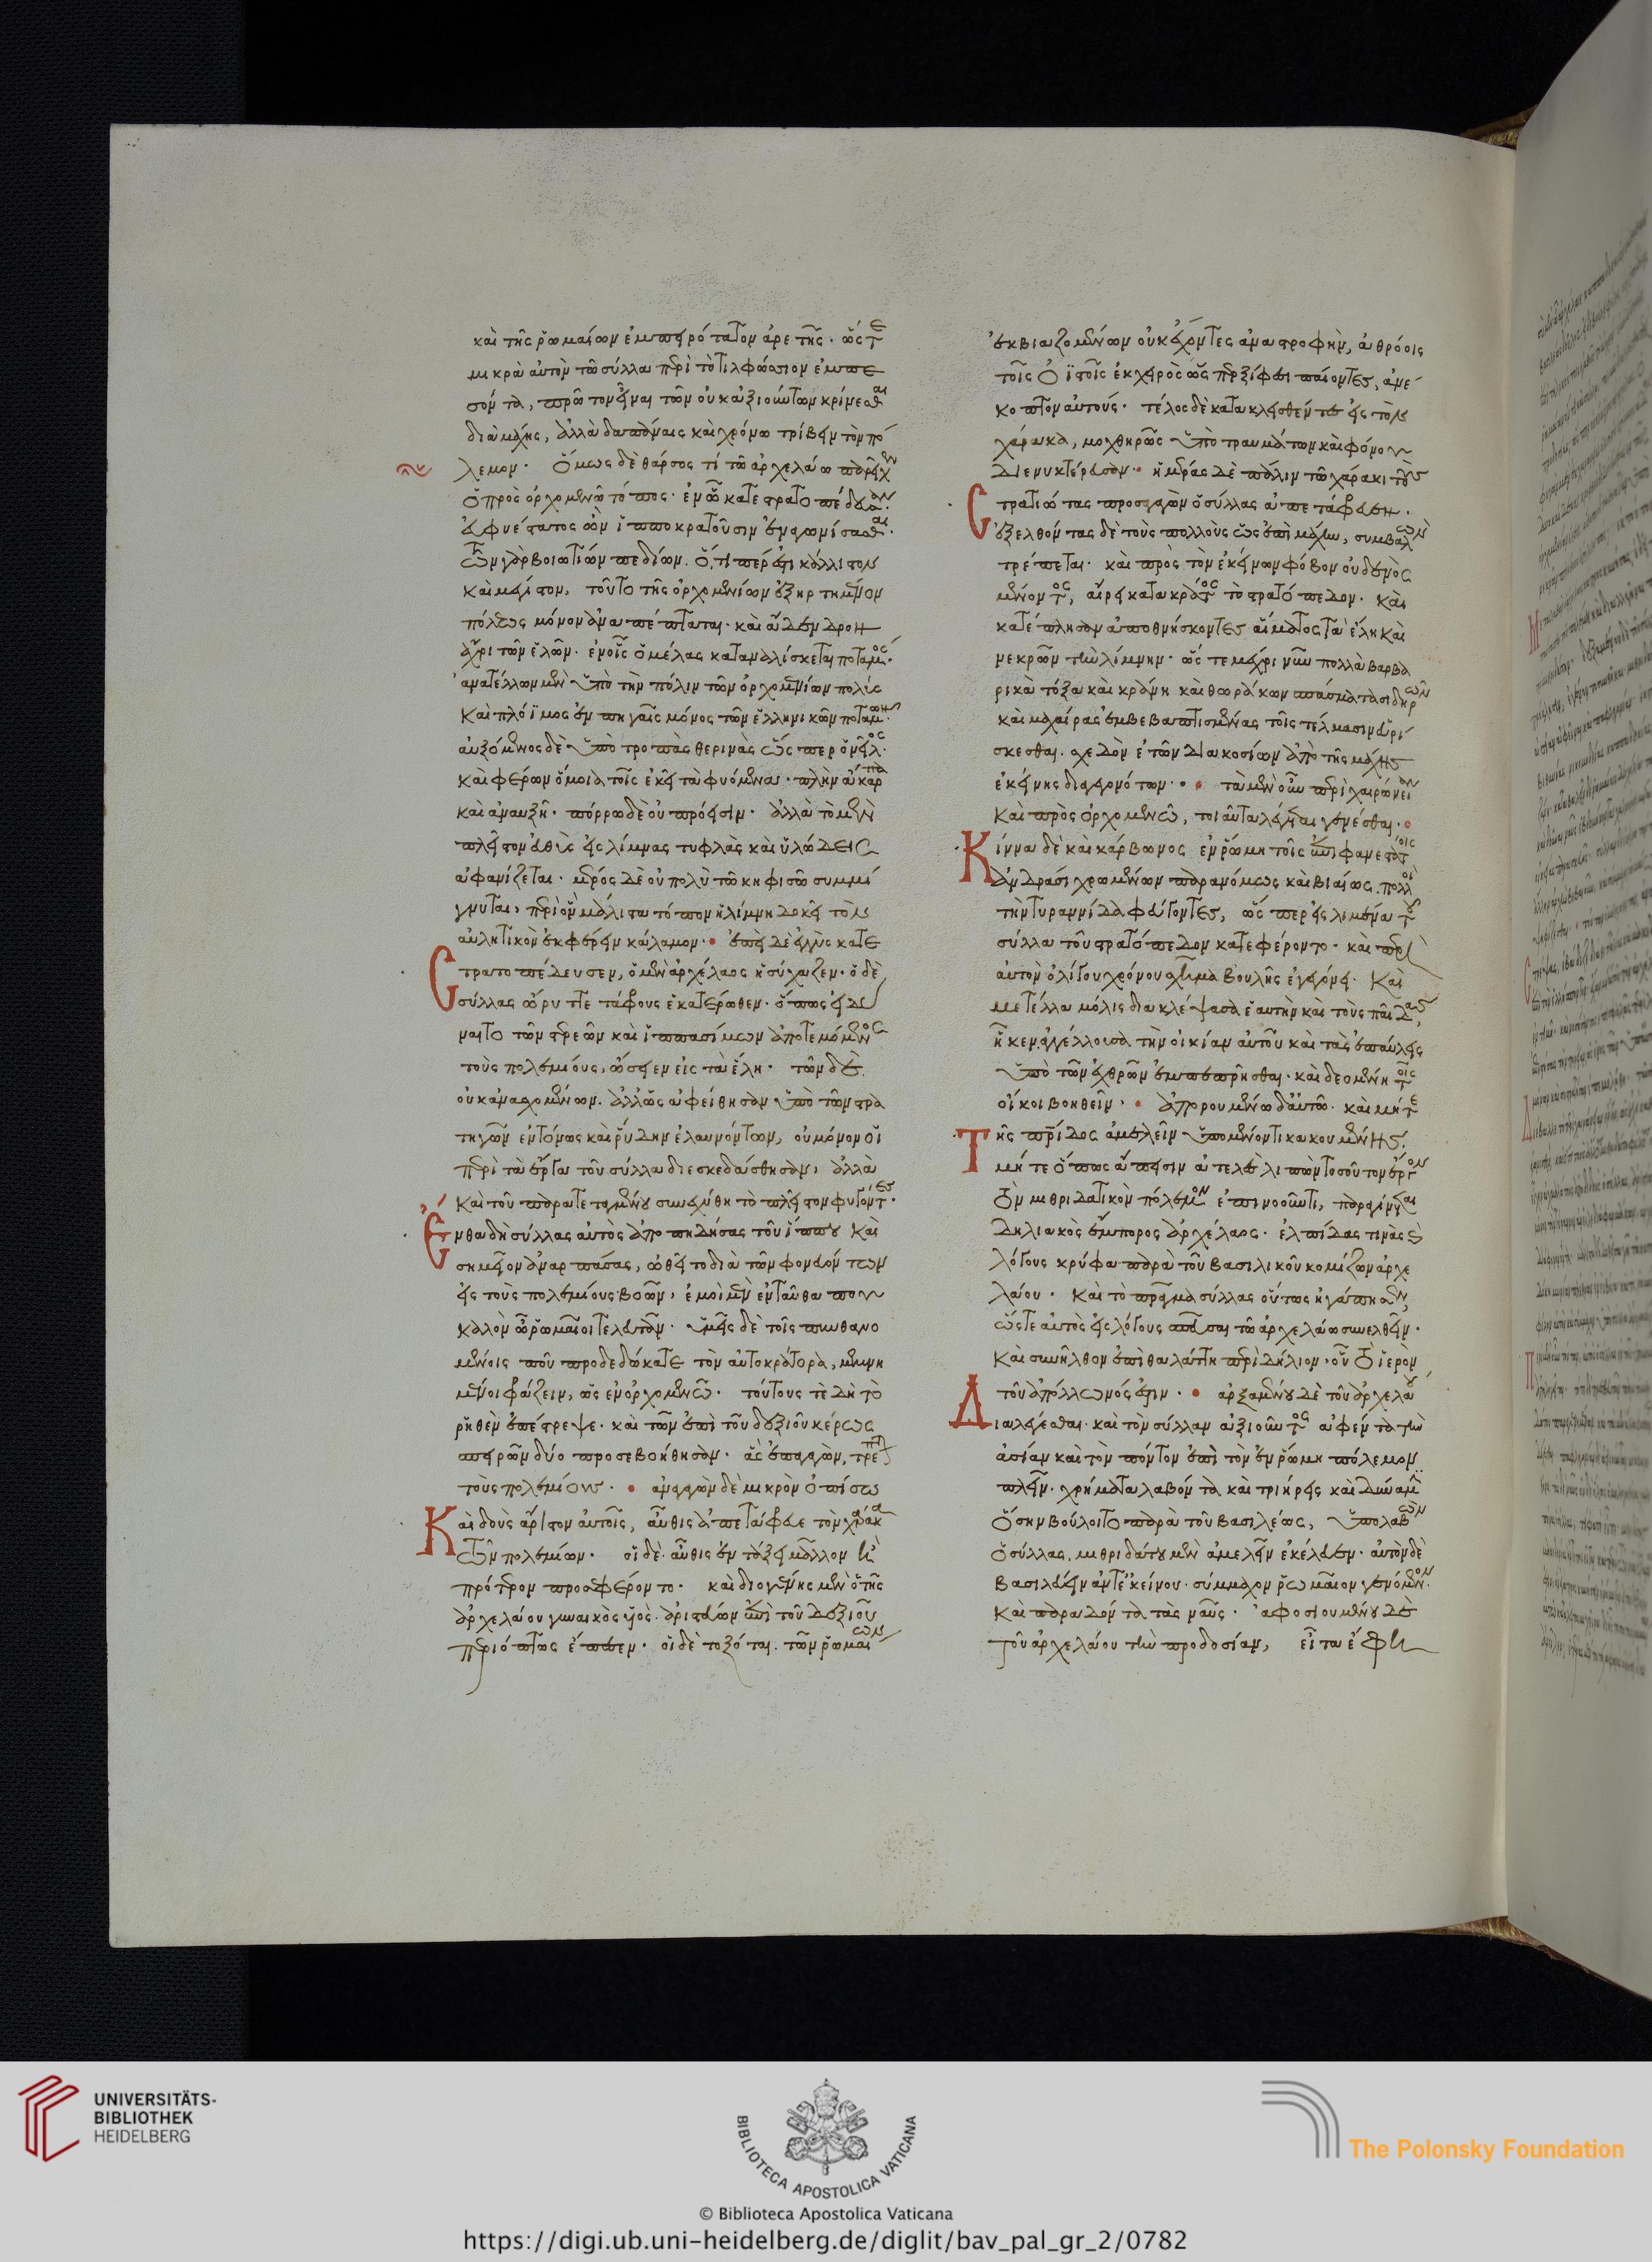 καὶ τῆς ῥωμαίων ἐμπειρότατον ἀρετῆς· ὥστε
μικρὰ αὐτὸν τῶ σύλλα περὶ τὸ τιλφώσιον ἐμπε
σόντα, πρῶτον εἶναι τῶν οὐκ ἀξιούντων κρίνεσθαι
διὰ μάχης, ἀλλὰ δαπάναις καὶ χρόνω τρίβειν τὸν πό
λεμον. Ὅμως δὲ θάρσος τί τῶ ἀρχελάω παρεῖχεν
ὁ πρὸς ὀρχομενῶ τόπος· ἐν ὧ κατεστρατοπέδευσαν·
εὐφυέστατος ὢν ἱπποκρατοῦσιν ἐναγωνίσασθαι.
τῶν γὰρ βοιωτίων πεδίων. ὅ, τί περ ἔστι κάλλιστον
καὶ μέγιστον, τοῦτο τῆς ὀρχομενίων ἐξηρτημένον
πόλεως μόνον ἀναπέπταται· καὶ ἄδενδρον
ἄχρι τῶν ἑλῶν· ἐν οἷς ὁ μέλας καταναλίσκεται ποταμός.
ἀνατέλλων μὲν ὑπὸ τὴν πόλιν τῶν ὀρχομενίων πολύς
καὶ πλόϊμος ἐν πηγαῖς μόνος τῶν ἑλληνικῶν ποταμῶν.
αὐξόμενος δὲ ὑπὸ τροπὰς θερινὰς ὥσπερ ὁ νεῖλος·
καὶ φέρων ὅμοια τοῖς ἐκεῖ τὰ φυόμενα· πλὴν ἄκαρπα
καὶ ἀναυξῆ· πόρρω δὲ οὐ πρόεισιν· ἀλλὰ τὸ μὲν
πλεῖστον εὐθὺς εἰς λίμνας τυφλὰς καὶ ἑλώδεις
ἀφανίζεται· μέρος δὲ οὐ πολὺ τῶ κηφισῶ συμμί
γνυται, περὶ ὃν μάλιστα τόπον ἡ λίμνη δοκεῖ τὸν
αὐλητικὸν ἐκφέρειν κάλαμον. ἐπεὶ δὲ ἐγγὺς κατε
στρατοπέδευσεν, ὁ μὲν ἀρχέλαος ἡσύχαζεν· ὁ δὲ
σύλλας ὤρυττε τάφρους ἑκατέρωθεν· ὅπως εἰ δύ
ναιτο τῶν στερεῶν καὶ ἱππασίμων ἀποτεμόμενος
τοὺς πολεμίους, ὤσειεν εἰς τὰ ἕλη. τῶν δὲ
οὐκ ἀνασχομένων. ἀλλ' ὡς ἀφείθησαν ὑπὸ τῶν στρα
τηγῶν ἐντόνως καὶ ῥύδην ἐλαυνόντων, οὐ μόνον οἱ
περὶ τὰ ἔργα τοῦ σύλλα διεσκεδάσθησαν, ἀλλὰ
καὶ τοῦ παρατεταγμένου συνεχύθη τὸ πλεῖστον φυγόντες.
Ἔνθα δὴ σύλλας αὐτὸς ἀποπηδήσας τοῦ ἵππου καὶ
σημεῖον ἀναρπάσας, ὠθεῖτο διὰ τῶν φευγόντων
εἰς τοὺς πολεμίους βοῶν, ἐμοὶ μὲν ἐνταῦθα που
καλὸν ὦ ῥωμαῖοι τελευτᾶν. ὑμεῖς δὲ τοῖς πυνθανο
μένοις ποῦ προδεδώκατε τὸν αὐτοκράτορα, μεμνη
μένοι φράζειν, ὡς ἐν ὀρχομενῶ. τούτους τὲ δὴ τὸ
ῥηθὲν ἐπέστρεψε· καὶ τῶν ἐπὶ τοῦ δεξιοῦ κέρως
σπειρῶν δύο προσεβοήθησαν· ἃς ἐπαγαγὼν, τρέπεται
τοὺς πολεμίους. ἀναγαγὼν δὲ μικρὸν ὀπίσω
Καὶ δοὺς ἄριστον αὐτοῖς, αὖθις ἀπετάφρευε τὸν χάρακα
τῶν πολεμίων· οἱ δὲ αὖθις ἐν τάξει μᾶλλον ἢ
πρότερον προσεφέροντο. καὶ διογένης μὲν ὁ τῆς
ἀρχελάου γυναικὸς υἱὸς. ἀριστεύων ἐπὶ τοῦ δεξιοῦ
περιόπτως ἔπεσεν. οἱ δὲ τοξόται. τῶν ῥωμαίων
ἐκβιαζομένων οὐκ ἔχοντες ἀναστροφὴν, ἀθρόοις
τοῖς ὀϊστοῖς ἐκ χειρὸς ὡς περ ξίφει παίοντες, ἀνέ
κοπτον αὐτούς. τέλος δὲ κατακλεισθέντες εἰς τὸν
χάρακα, μοχθηρῶς ὑπὸ τραυμάτων καὶ φόνου
διενυκτέρευσαν. ἡμέρας δὲ πάλιν τῶ χάρακι τοὺς
στρατιώτας προσαγαγὼν ὁ σύλλας ἀπετάφρευεν.
ἐξελθόντας δὲ τοὺς πολλοὺς ὡς ἐπὶ μάχην, συμβαλὼν
τρέπεται· καὶ πρὸς τὸν ἐκείνων φόβον οὐδενὸς
μένοντος, αἱρεῖ κατακράτος τὸ στρατόπεδον. καὶ
κατέπλησαν ἀποθνήσκοντες αἵματος τὰ ἕλη καὶ
νεκρῶν τὴν λίμνην· ὥστε μέχρι νῦν πολλὰ βαρβα
ρικὰ τόξα καὶ κράνη καὶ θωράκων σπάσματα σιδηρῶν
καὶ μαχαίρας ἐμβεβαπτισμένας τοῖς τέλμασιν εὑρί
σκεσθαι. σχεδὸν ἐτῶν διακοσίων ἀπὸ τῆς μάχης
ἐκείνης διαγεγονότων. τὰ μὲν οὖν περὶ χαιρώνειαν
καὶ πρὸς ὀρχομενῶ, τοιαῦτα λέγεται γενέσθαι.
Κίννα δὲ καὶ κάρβωνος ἐν ῥώμη τοῖς ἐπιφανεστάτοις
ἀνδράσι χρωμένων παρανόμως καὶ βιαίως. πολλοὶ
τὴν τυραννίδα φεύγοντες, ὥσπερ εἰς λιμένα τοῦ
σύλλα τοῦ στρατόπεδον κατεφέροντο· καὶ περὶ
αὐτὸν ὀλίγου χρόνου σχῆμα βουλῆς ἐγεγόνει. καὶ
μετέλλα μόλις διακλέψασα ἑαυτὴν καὶ τοὺς παῖδας,
ἧκεν ἀγγέλλουσα τὴν οἰκίαν αὐτοῦ καὶ τὰς ἐπαύλεις
ὑπὸ τῶν ἐχθρῶν ἐμπεπρῆσθαι· καὶ δεομένη τοῖς
οἴκοι βοηθεῖν. ἀπορουμένω δ' αὐτῶ. καὶ μήτε
Τῆς πατρίδος ἀμελεῖν ὑπομένοντι κακουμένης.
μήτε ὅπως ἄπεισιν ἀτελὲς λιπὼν τοσοῦτον ἔργον
τὸν μιθριδατικὸν πόλεμον ἐπινοοῦντι, παραγίνεται
δηλιακὸς ἔμπορος ἀρχέλαος. ἐλπίδας τινὰς καὶ
λόγους κρύφα παρὰ τοῦ βασιλικοῦ κομίζων ἀρχε
λάου. καὶ τὸ πρᾶγμα σύλλας οὕτως ἠγάπησεν,
ὥστε αὐτὸς εἰς λόγους σπεῦσαι τῶ ἀρχελάω συνελθεῖν.
καὶ συνῆλθον ἐπὶ θαλάττη περὶ δήλιον, οὗ τὸ ἱερὸν
τοῦ ἀπόλλωνός ἐστιν. ἀρξαμένου δὲ τοῦ ἀρχελάου
Διαλέγεσθαι. καὶ τὸν σύλλαν ἀξιοῦντος ἀφέντα τὴν
ἀσίαν καὶ τὸν πόντον ἐπὶ τὸν ἐν ῥώμη πόλεμον
πλεῖν. χρήματα λαβόντα καὶ τριήρεις καὶ δύναμιν
ὅσην βούλοιτο παρὰ τοῦ βασιλέως, ὑπολαβὼν
ὁ σύλλας. μιθριδάτου μὲν ἀμελεῖν ἐκέλευεν. αὐτὸν δὲ
βασιλεύειν ἀντ' ἐκείνου. σύμμαχον ῥωμαίων γενόμενον.
καὶ παραδόντα τὰς ναῦς. ἀφοσιουμένου δὲ
τοῦ ἀρχελάου τὴν προδοσίαν, εἶτα ἔφη
UNIVERSITÄTS-
BIBLIOTHEK
HEIDELBERG
BIBLIOTECA APOSTOLICA VATICANA
The Polonsky Foundation
© Biblioteca Apostolica Vaticana
https://digi.ub.uni-heidelberg.de/diglit/bav_pal_gr_2/0782